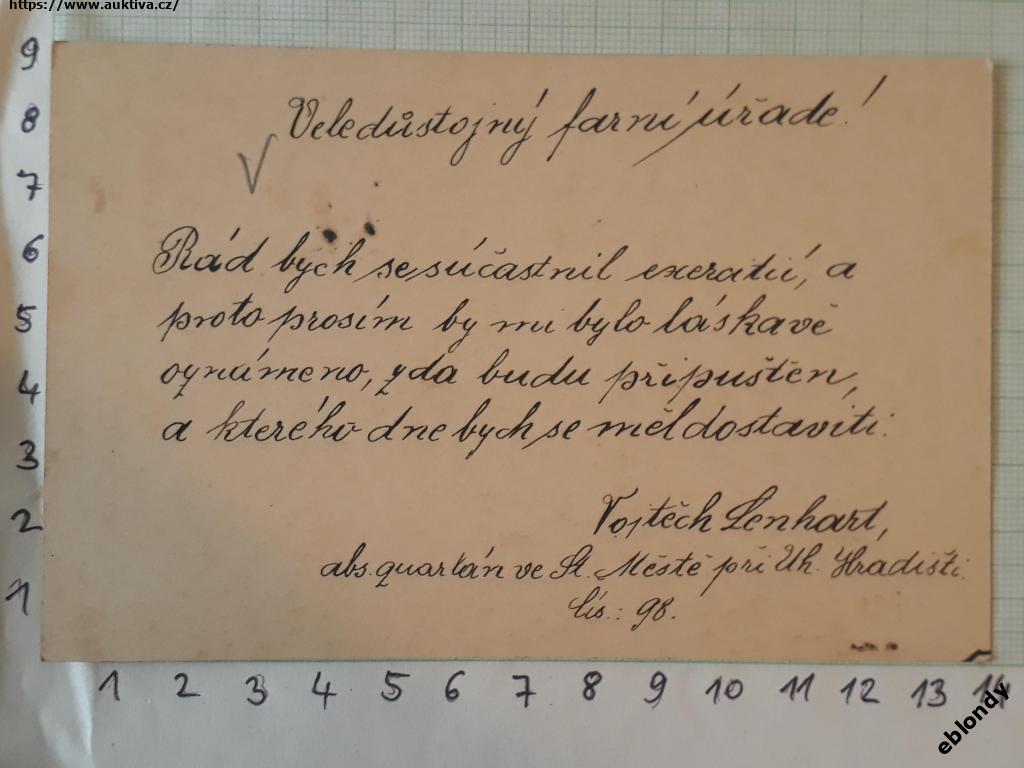 https://www.auktiva.cz/
Veledůstojný farní úřade!
Rád bych se súčastnil exercitií, a
proto prosím by mi bylo láskavě
oznámeno, zda budu připuštěn,
a kterého dne bych se měl dostaviti.
Vojtěch Lenhart,
abs. quartán ve St. Městě při Uh. Hradišti.
čís.: 98.
9
8
7
6
5
4
3
2
1
1 2 3 4 5 6 7 8 9 10 11 12 13 14
eblondy